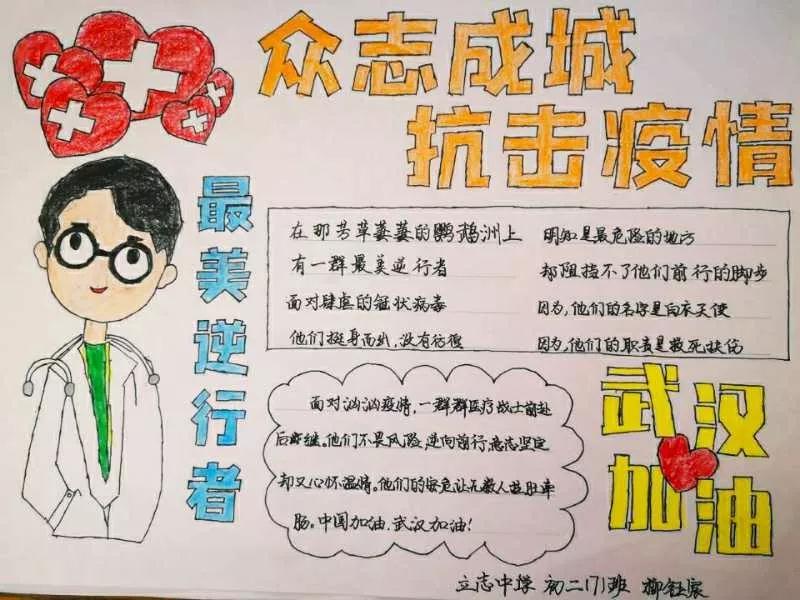 众志成城
抗击疫情
最美逆行者
在那芳草萋萋的鹦鹉洲上
有一群最美逆行者
面对肆虐的冠状病毒
他们挺身而出,没有彷徨
明知是最危险的地方
却阻挡不了他们前行的脚步
因为,他们的名字是白衣天使
因为,他们的职责是救死扶伤
面对汹汹疫情,一群群医疗战士前赴
后继。他们不畏风险,逆向前行,意志坚定
却又心怀温情。他们的安危让无数人牵肚牵
肠。中国加油,武汉加油!
武汉
加油
立志中学 初二171班